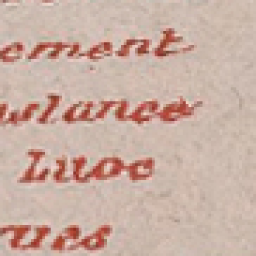 ement
ulance
Luoe
ues